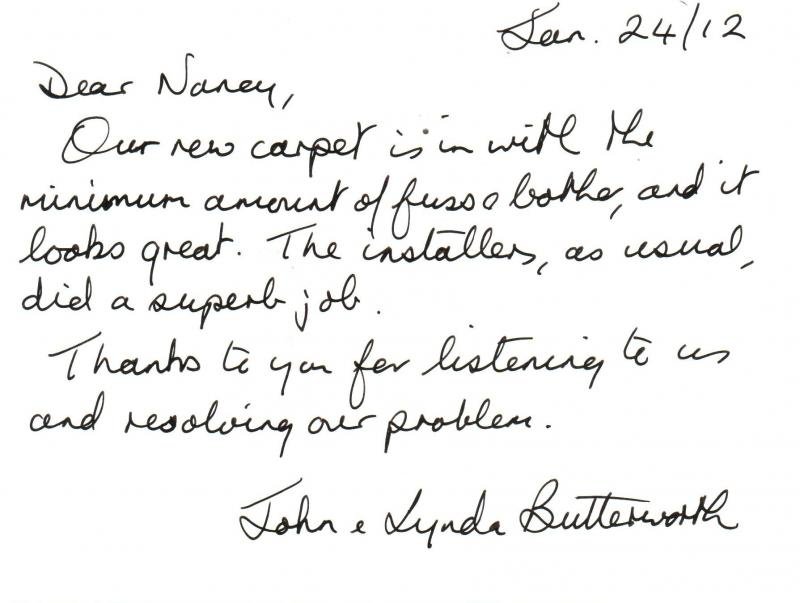 Jan. 24/12
Dear Nancy,
Our new carpet is in with the
minimum amount of fuss & bother, and it
looks great. The installers, as usual,
did a superb job.
Thanks to you for listening to us
and resolving our problem.
John & Lynda Butterworth